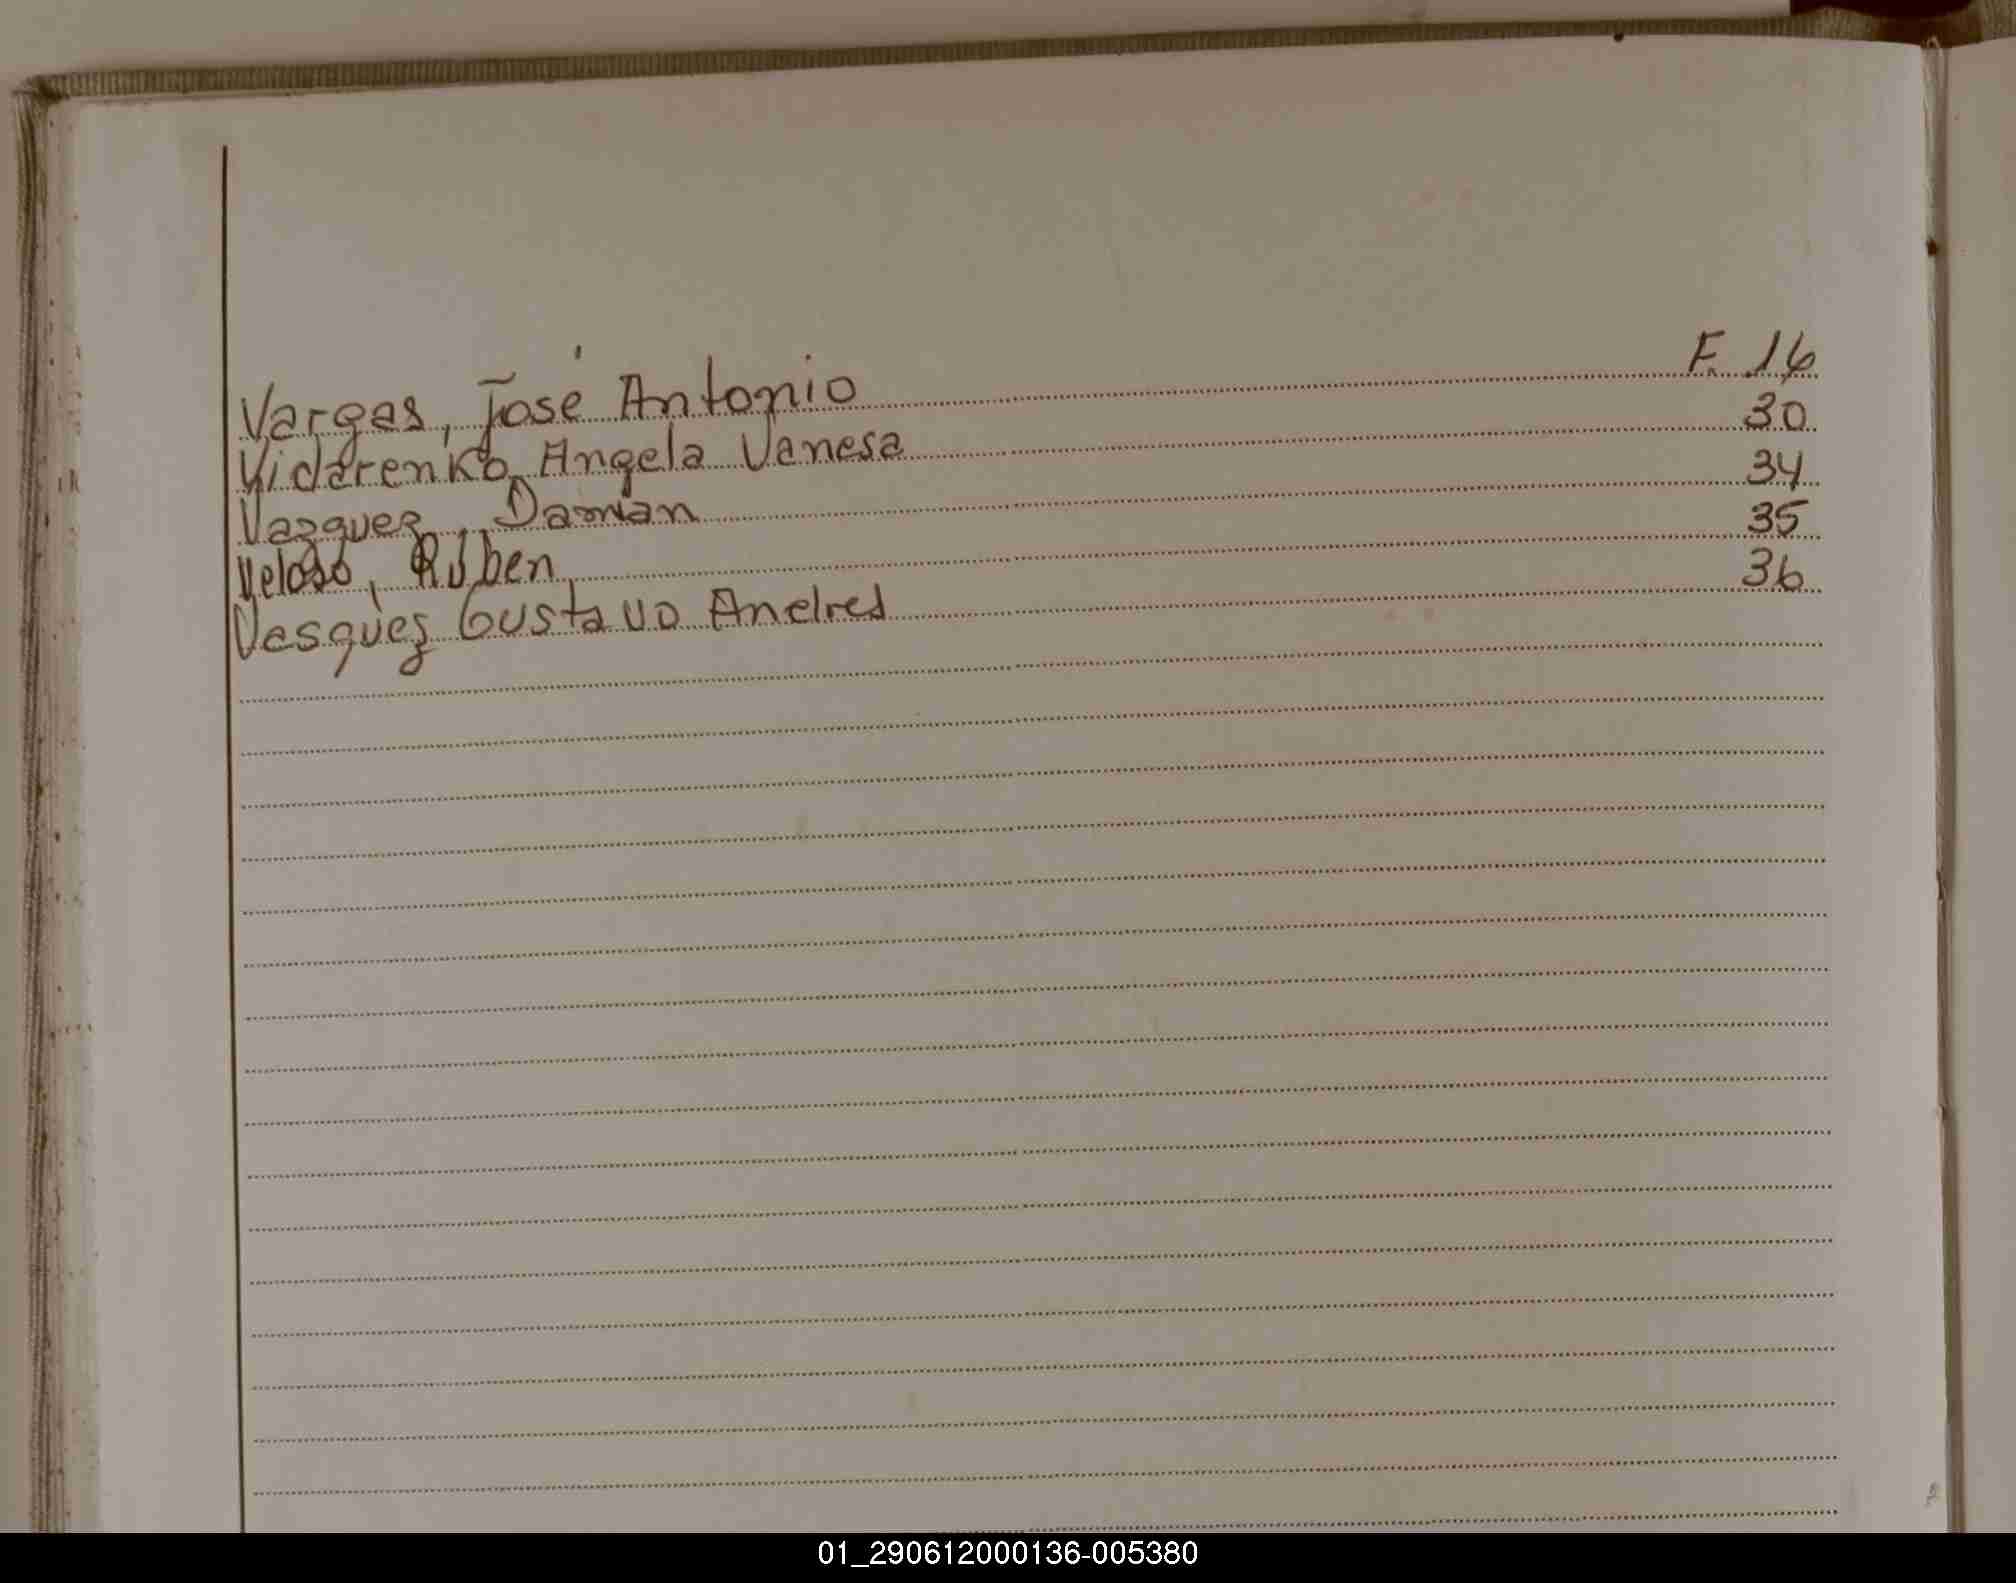 Vargas, José Antonio F. 16
Vidarenko, Angela Vanesa 30
Vazquez, Damian 34
Veloso, Rúben 35
Vasquez Gustavo Andres 36
01_290612000136-005380